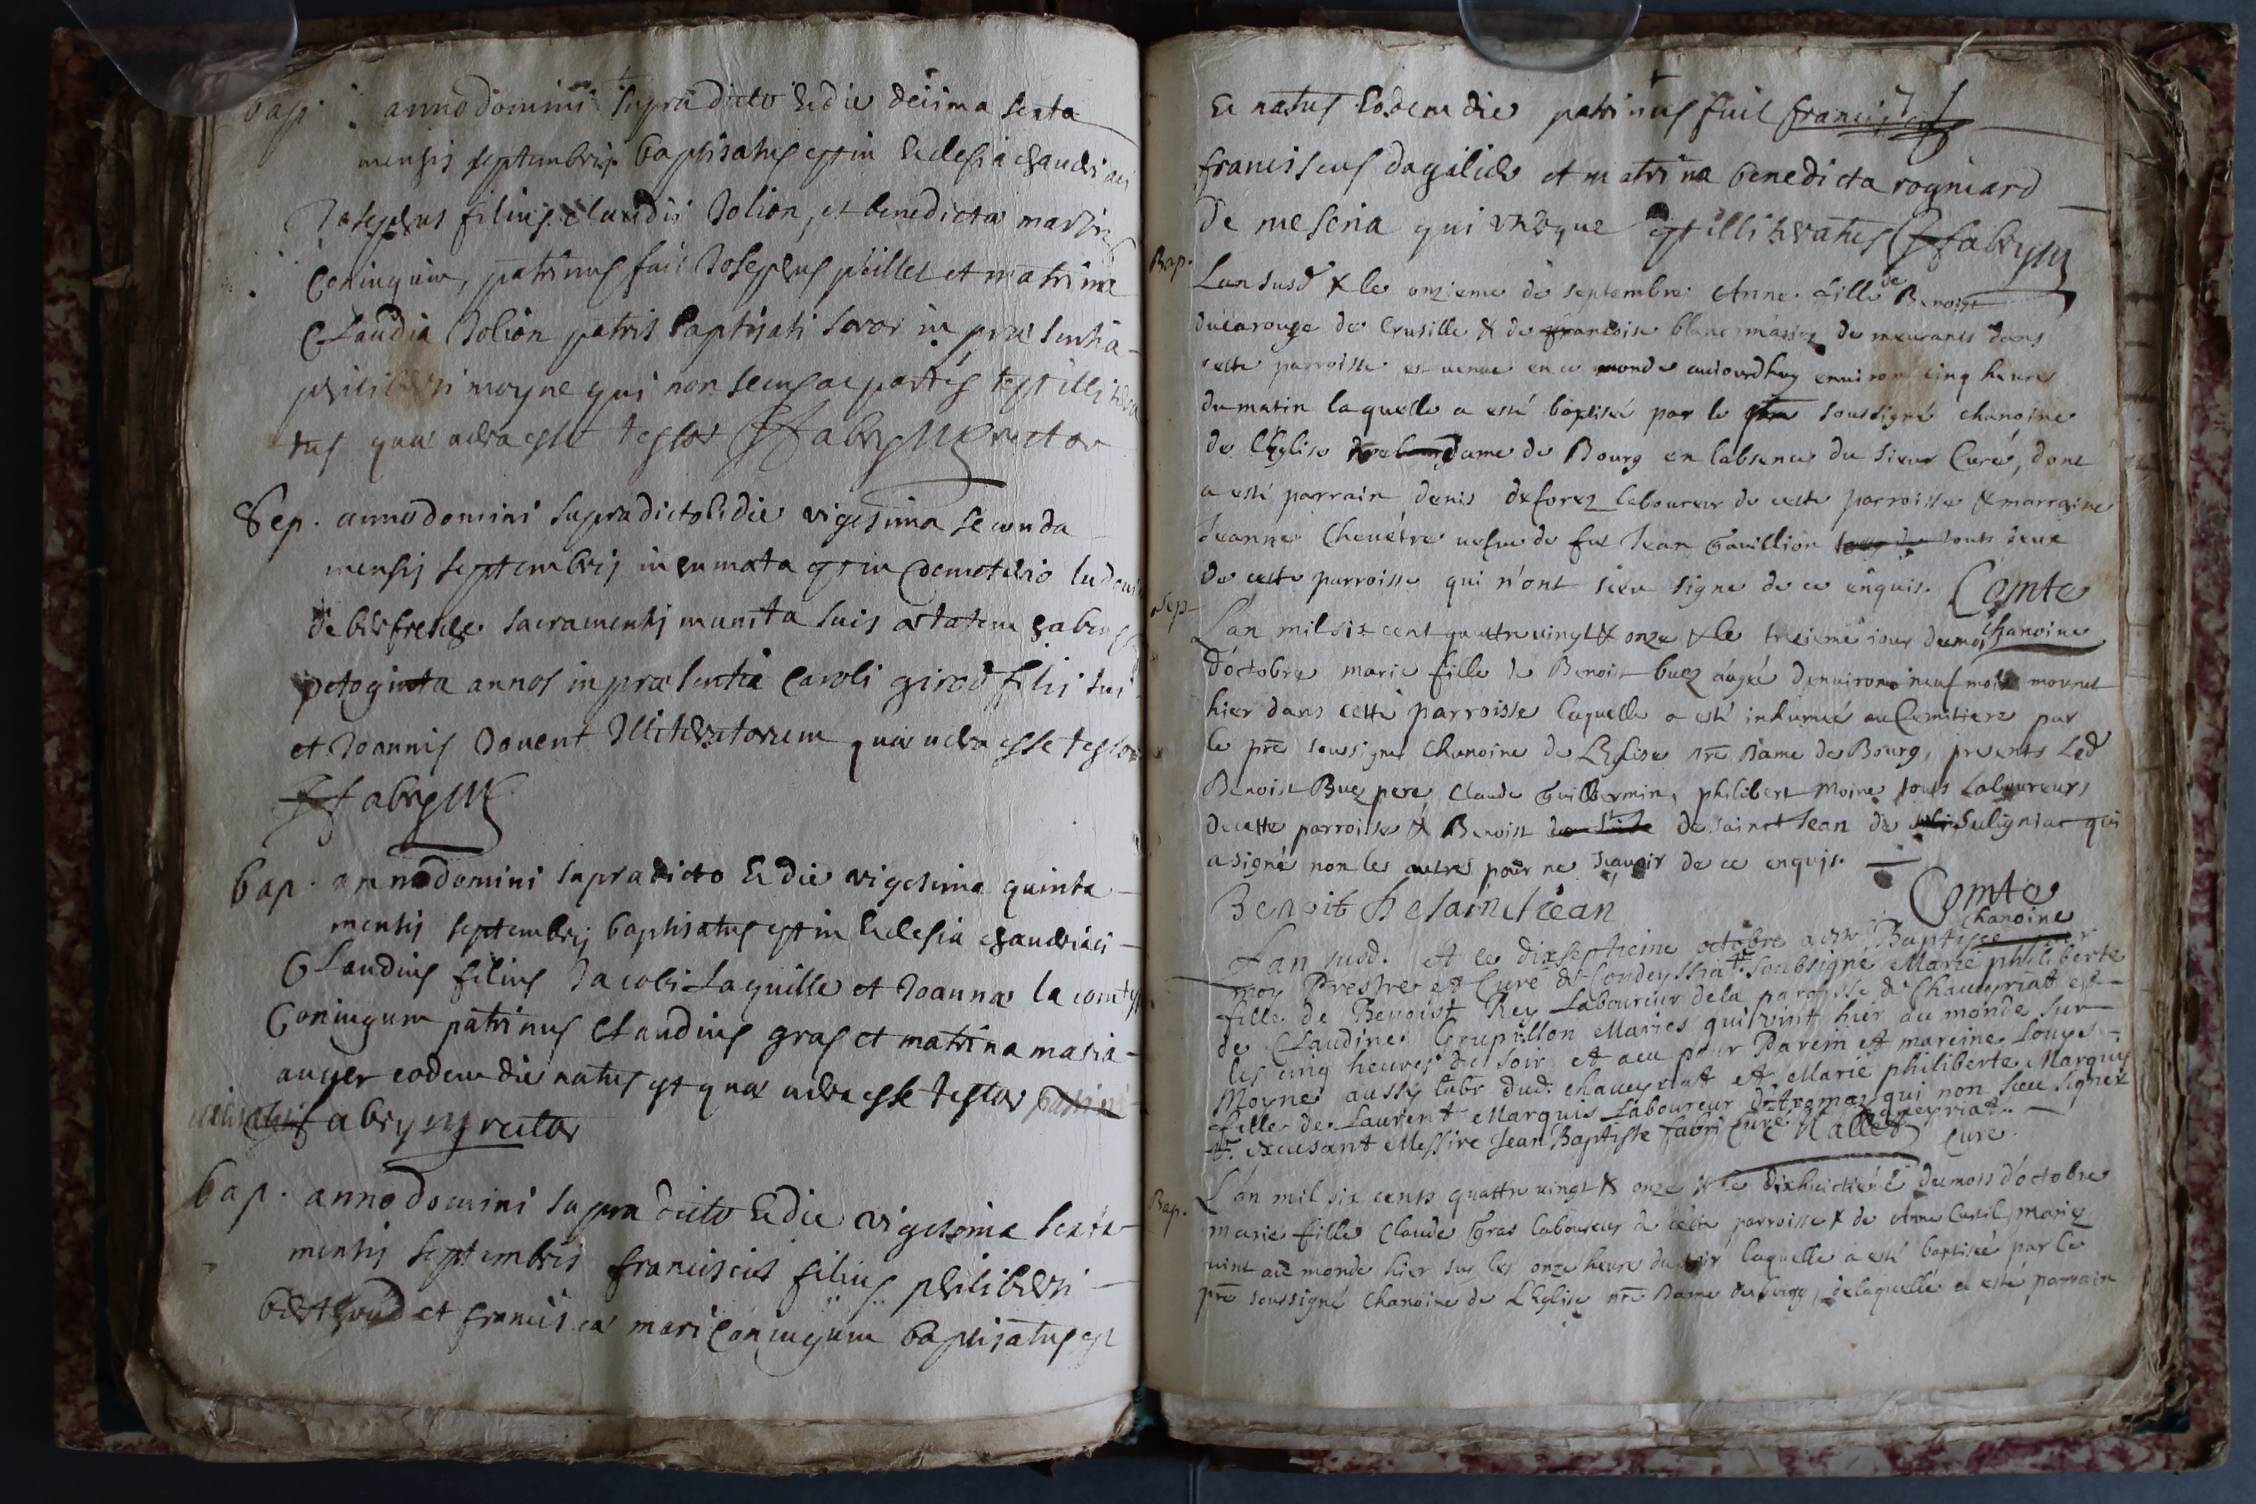 bap. anno domini supradicto & die decima sexta
mensis septembris baptisatus est in Ecclesia
Josephus filius Claudii Jolion, et benedicta
Coniugum, patrinus fuit Josephus pillet et matrina
Claudia Jolion patris baptisati soror in præsentia
philiberti moyne qui non secus ac partes est illitera
tus quæ vera esse testor Fabry rector
Sep. anno domini supradicto & die vigesima secunda
mensis septembris inhumata est in Coemeterio
sacramentis munita suis ætatem habens
octoginta annos in præsentia Caroli girod filii sui
et Joannis Jouent Illiteratorum quæ vera esse testor
Fabry
bap. anno domini supradicto & die vigesima quinta
mensis septembris baptisatus est in Ecclesia chaveiriaci
Claudius filius Jacobi Laquille et Joannæ
Coniugum patrinus Claudius gras et matrina maria
auger eodem die natus est quæ vera esse testor
Fabry rector
bap. anno domini supradicto & die vigesima sexta
mensis septembris franciscus filius philiberti
et francisca mari Coniugum baptisatus est
Et natus Eodem die patrinus fuit
franciscus dagallier et matrina benedicta rogniard
de meseria qui uterque est illiteratus Fabry
Bap. L'an susd & le onzieme de septembre Anne fille de Benoist
ducarouge de Crusille & de francoise blanc mariez de meurans dans
cette parroisse est venue en ce monde aujourdhuy environ cinq heures
du matin laquelle a esté baptisée par le soussigné chanoine
de l'Eglise Dame de Bourg en l'absence du sieur Curé, dont
a esté parrain denis deforez laboureur de cette parroisse & marraine
Jeanne Chenêtre vefve de fut Jean Gavillion touts deux
de cette parroisse qui n'ont sceu signe de ce enquis. Comte
Chanoine
Sep L'an mil six cent quattre vingt & onze & le treizieme jour du mois
d'octobre marie fille de Benoist buez aagée d'environ neuf mois mourut
hier dans cette parroisse laquelle a esté inhumée au Cemitiere par
le pre soussigné Chanoine de L'Eglise nre Dame de Bourg, presents Led
Benoist Buez pere, Claude Guillermin, philibert Moine touts Laboureurs
de cette parroisse & Benoist de sainct Jean de Suligniat qui
a signé non les autres pour ne sçavoir de ce enquis.
Benoit De saint iean Comte
Chanoine
L'an susd. et le dixseptieme octobre a este Baptisee par
moy Prestre et Curé de Condeyssiat soubsigné Marie philiberte
fille de Benoist Rey Laboureur de la paroisse de Chaveyriat et
de Claudine Crupillon Maries qui vint hier au monde sur
les cinq heures du soir et a eu pour Parein et mareine Louys
Moyne aussy labr dud. chaveyriat et Marie philiberte Marquis
fille de Laurent Marquis Laboureur qui non sceu signer
excusant Messire Jean Baptiste fabri Curé Chaveyriat.
Curé
Bap. L'an mil six cents quattre vingt & onze & le dixhuictiéme du mois d'octobre
marie fille Claude Gras laboureur de cette parroisse & de Anne mariez
vint au monde hier sur les onze heures du soir laquelle a esté baptisée par le
pre soussigné Chanoine de L'Eglise nre Dame de bourg, de laquelle a esté parrain